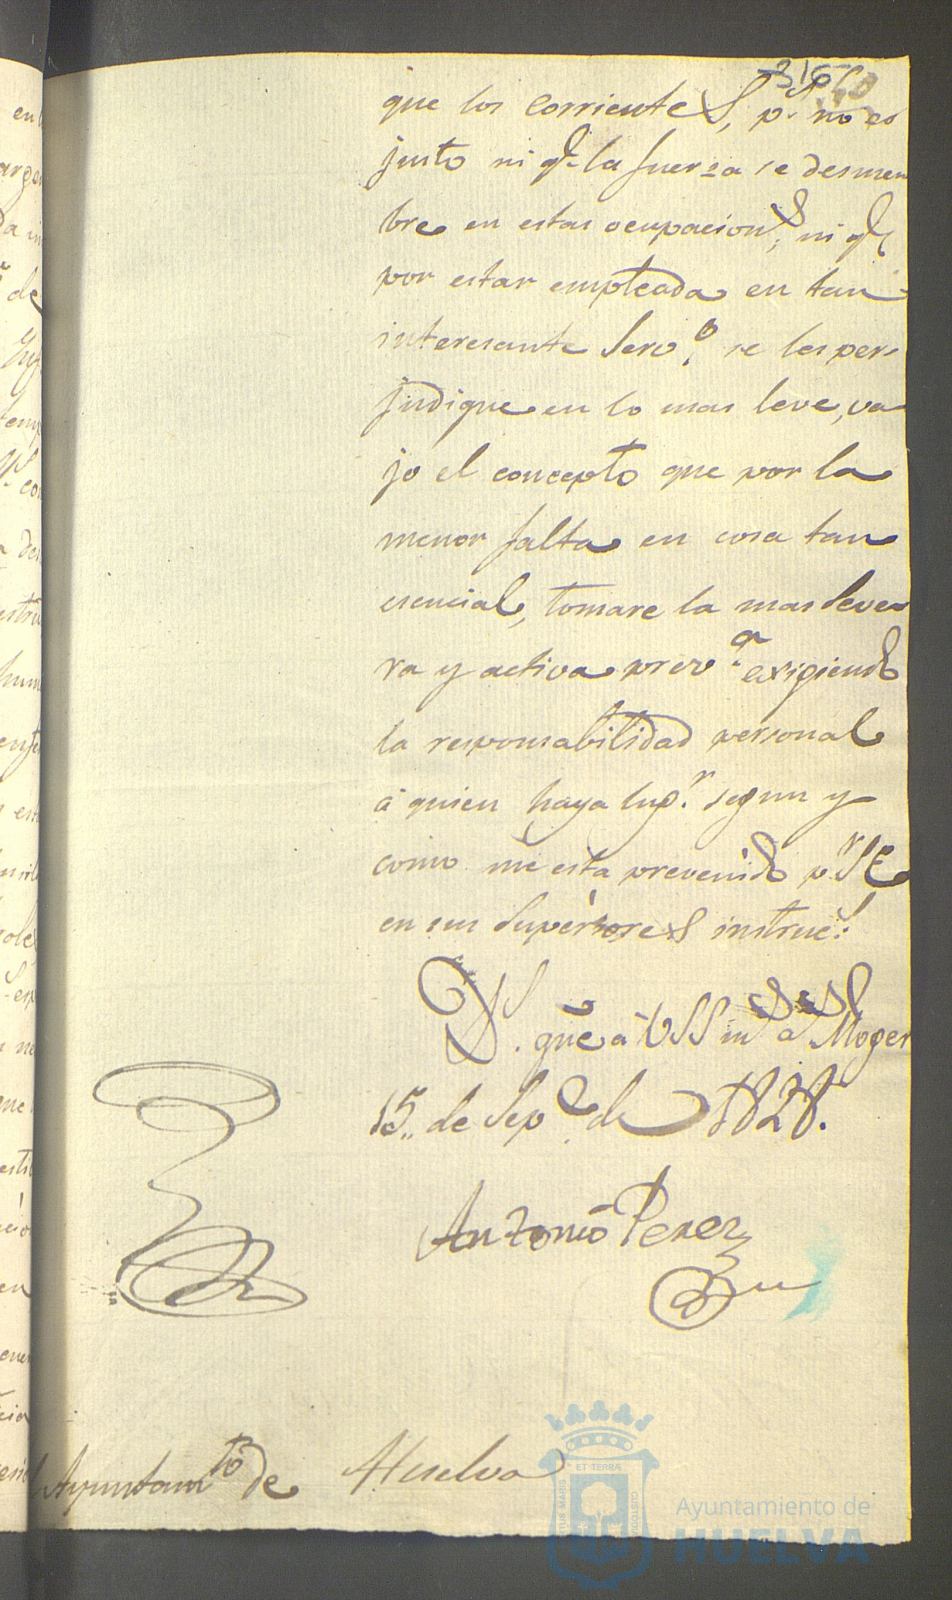 316 40
que los corrientes, pˢ. no es
justo ni qᵉ la fuerza se desmen
bre en estas ocupacionˢ, ni qᵉ
por estar empleada en tan
interesante Servᵒ. se les per-
judique en lo mas leve, va
jo el concepto que por la
menor falta en cosa tan
esencial, tomare la mas seve-
ra y activa provᵃ. exigiendo
la responsabilidad personal
á quien haya lugʳ. segun y
como me está prevenido pʳ S E
en sus Superiores instrucˢ.
Dˢ. gue á VSS mˢ aˢ Moger
15., de Sepᵉ. de 1828.
Antonio Perez
Ayuntamᵗᵒ de Huelva
ET TERRÆ
PORTUS MARIS
CUSTODIA
Ayuntamiento de
HUELVA